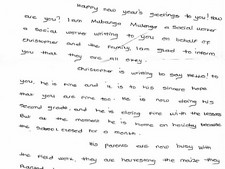 Happy new year's greetings to you! How
are you? I am Mubanga Mulenga a social worker
a social worker writing to you on behalf of
Christopher and the family, I am glad to inform
you that they are all okey.
Christopher is writing to say hello! to
you, he is fine and it is to his sincere hope
that you are fine too. He is now doing his
second grade, and he is doing fine with the lessons
But at the moment he is home on holiday because
the school closed for a month.
His parents are now busy with
the field work, they are harvesting the maize they
planted